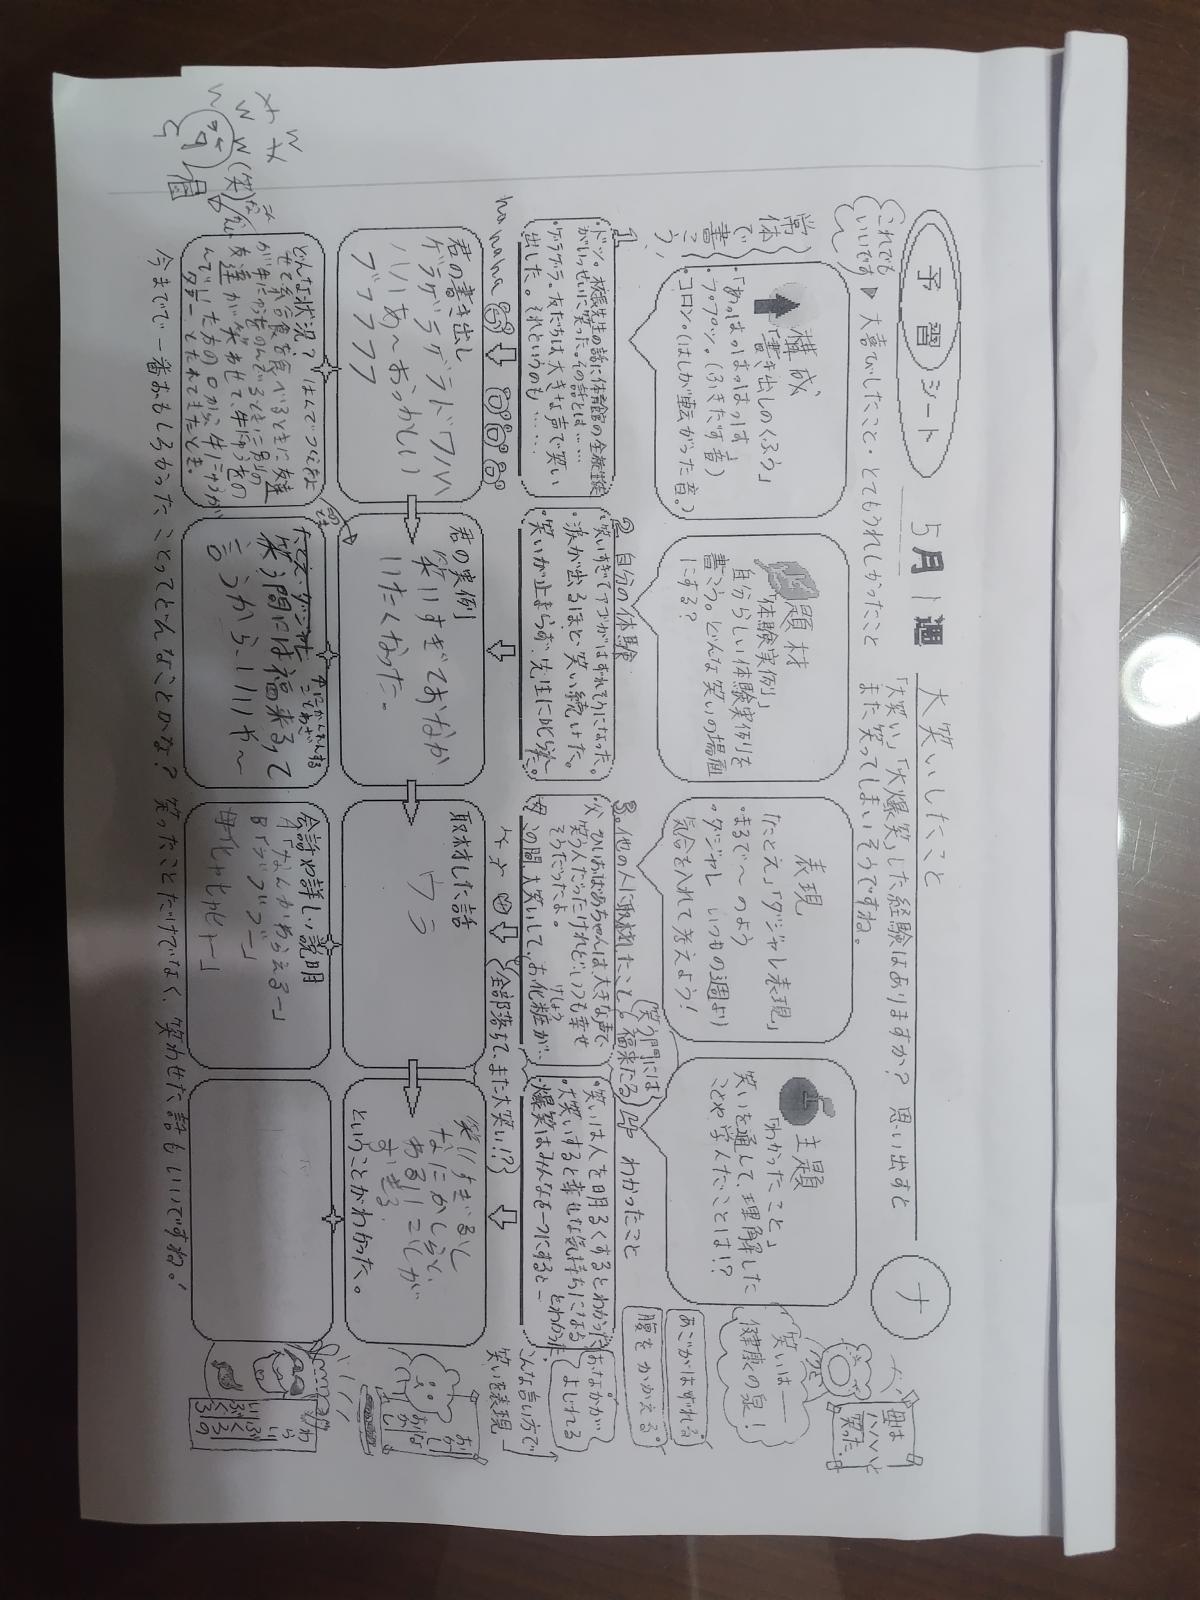 予習シート
5月1週
大笑いしたこと
ナ
これでも
いいです
▶大喜びしたこと・とてもうれしかったこと
「大笑い」「大爆笑」した経験はありますか？ 思い出すと
また笑ってしまいそうですね。
常体
で
書こう、
構成
「書き出しのくふう」
・「あっはっはっはっは」
・プ・プーッ。(ふきだす音)
・コロン。(はしが転がった音。)
題材
「体験実例」
自分らしい体験実例を
書こう。どんな笑いの場面
にする？
表現
「たとえ」「ダジャレ表現」
・まるで〜のよう
・ダジャレ いつもの週より
気合を入れて考えよう！
主題
「わかったこと」
笑いを通して、理解した
ことや学んだことは!?
母は
ハハハと
笑った
笑いは――
健康の泉！
あごがはずれる
腹をかかえる
1
・ドッ。校長先生の話に体育館の全校生徒
がいっせいに笑った。その話とは……
・ゲラゲラ。友だちは大きな声で笑い
出した。それというのも……
2 自分の体験
・笑いすぎてアゴがはずれそうになった。
・涙が出るほど笑い続けた。
・笑いが止まらず、先生に叱られた。
3。他の人に取材したこと
父 ひいおばあちゃんは大きな声で
笑う人だったけれど、いつも幸せ
そうだったよ。
母 この間、大笑いして、お化粧が、
けしょう
全部落ちて、また大笑い!?
笑う門には
福来たる
4 わかったこと
・笑いは人を明るくするとわかった
・大笑いすると幸せな気持ちになる
・爆笑はみんなを一つにすると―
とわかった。
おなかが
よじれる
こんな言い方で
笑いを表現
hahaha
君の書き出し
ゲラゲラゲラドワハ
ハハあ〜おっかしい
ブフフフフ
君の実例
笑いすぎておなか
いたくなった。
取材した話
ウラ
笑いすぎると
なにかしらど、
あるいこしが
すぎる
ということがわかった。
どんな状況？
せて給食を食べるときに友達
が牛にゅうをのんでるときに別の
友達が笑わせて牛にゅうをの
んでいた方の口から牛にゅうが
ダラーとたれてきたとき。
たとえ・ダジャレ
ことわざ
笑う間には福来るって
言うからいいや〜
会話や詳しい説明
A「なんかわらえるー」
B「ブブー」
(笑)
今までで一番おもしろかったことってどんなことかな？ 笑ったことだけでなく、笑わせた話もいいですね！